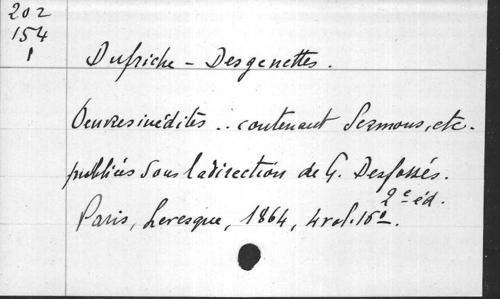 202
154
1
Dufriche - Desgenettes.
Oeuvres inédites .. contenant Sermons, etc.
publiés sous la direction de G. Desfossés.
2e éd.
Paris, Levesque, 1864, 4 vol. 16o.